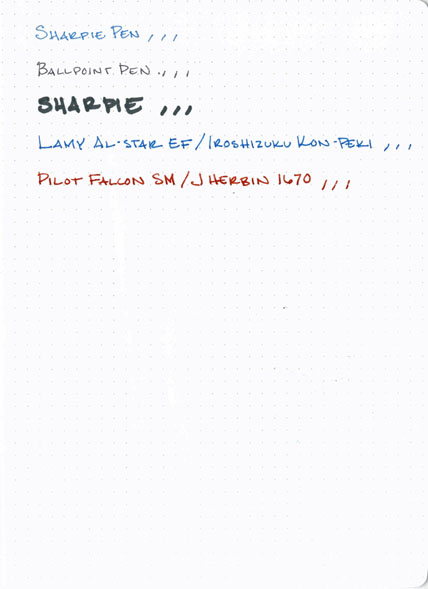 SHARPIE PEN , , ,
BALLPOINT PEN . , , ,
SHARPIE , , ,
LAMY AL-STAR EF / IROSHIZUKU KON-PEKI , , ,
PILOT FALCON SM / J HERBIN 1670 , , ,